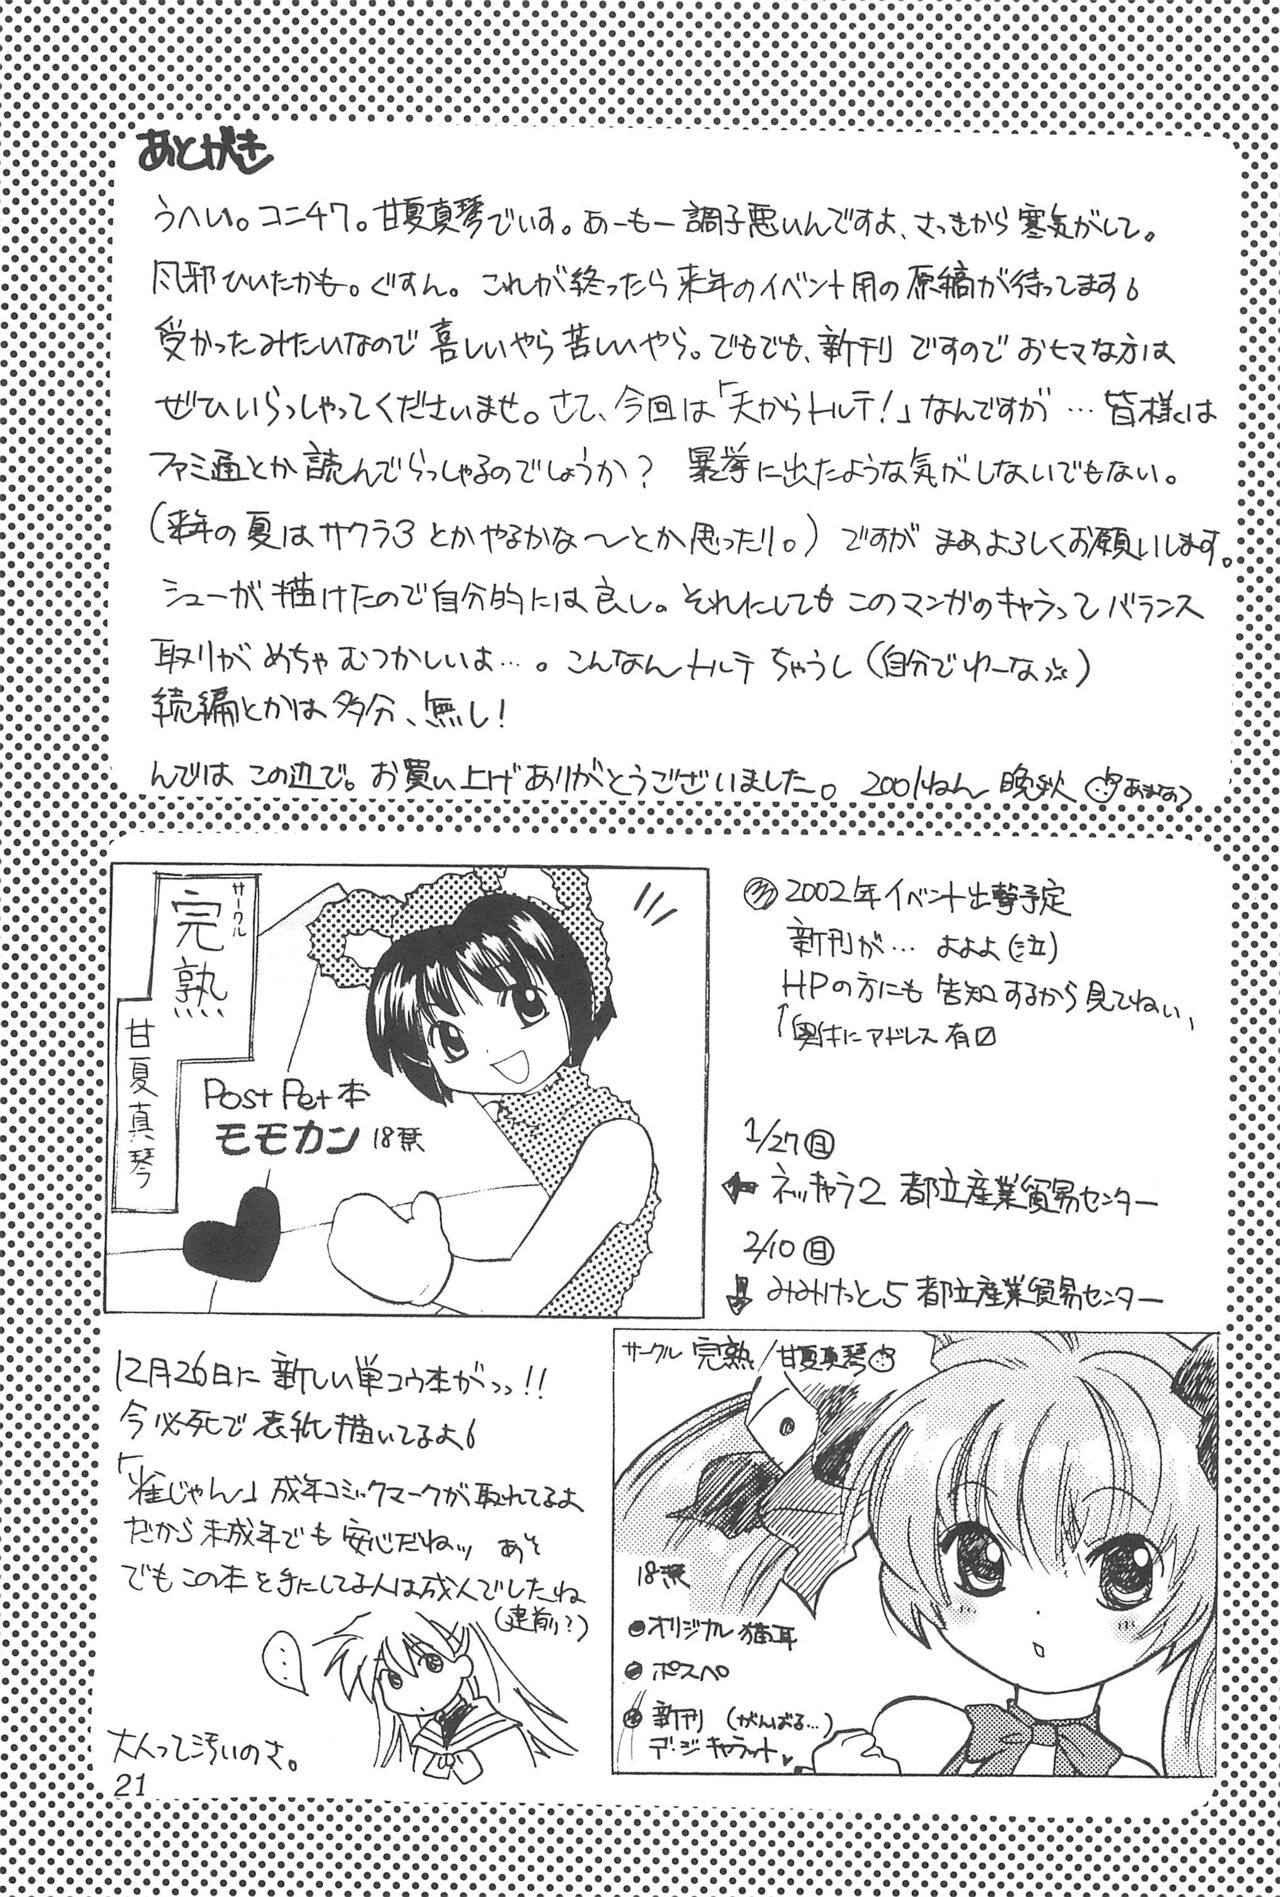 あとがき
うへい。コニ47。甘夏真琴でいす。あーもー調子悪いんですよ、さっきから寒気がして。
風邪ひいたかも。ぐすん。これが終ったら来年のイベント用の原稿が待ってます。
受かったみたいなので喜しいやら苦しいやら。でもでも、新刊ですのでおヒマな方は
ぜひいらっしゃってくださいませ。さて、今回は「天からトルテ!」なんですが…皆様は
ファミ通とか読んでらっしゃるのでしょうか? 暴挙に出たような気がしないでもない。
(来年の夏はサクラ3とかやるかな〜とか思ったり。)ですがまあよろしくお願いします。
シューが描けたので自分的には良し。それにしてもこのマンガのキャラってバランス
取りがめちゃむつかしいよ…。こんなんトルテちゃうし(自分でゆーな)
続編とかは多分、無し!
んではこの辺で。お買い上げありがとうございました。2001ねん 晩秋 あまなつ
サークル
完熟
甘夏真琴
Post Pet本
モモカン 18禁
2002年イベント出撃予定
新刊が…よよよ(泣)
HPの方にも告知するから見てねい、
↑奥付にアドレス有
1/27(日)
← ネッキャラ2 都立産業貿易センター
2/10(日)
↓ みみけっと5 都立産業貿易センター
12月26日に新しい単コウ本がっっ!!
今必死で表紙描いてるよ
「雀じゃん」成年コミックマークが取れてるよ
だから未成年でも安心だねッ あそ
でもこの本を手にしてる人は成人でしたね
(建前?)
…
大人って汚いのさ。
サークル 完熟/甘夏真琴
18禁
●オリジナル猫耳
●ポスペ
●新刊 (がんばる…)
デ・ジ・キャラット
21